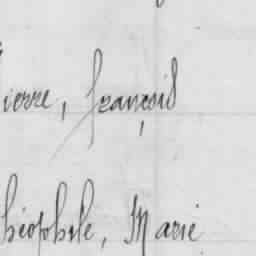 ierre, françois
héophile, Marie